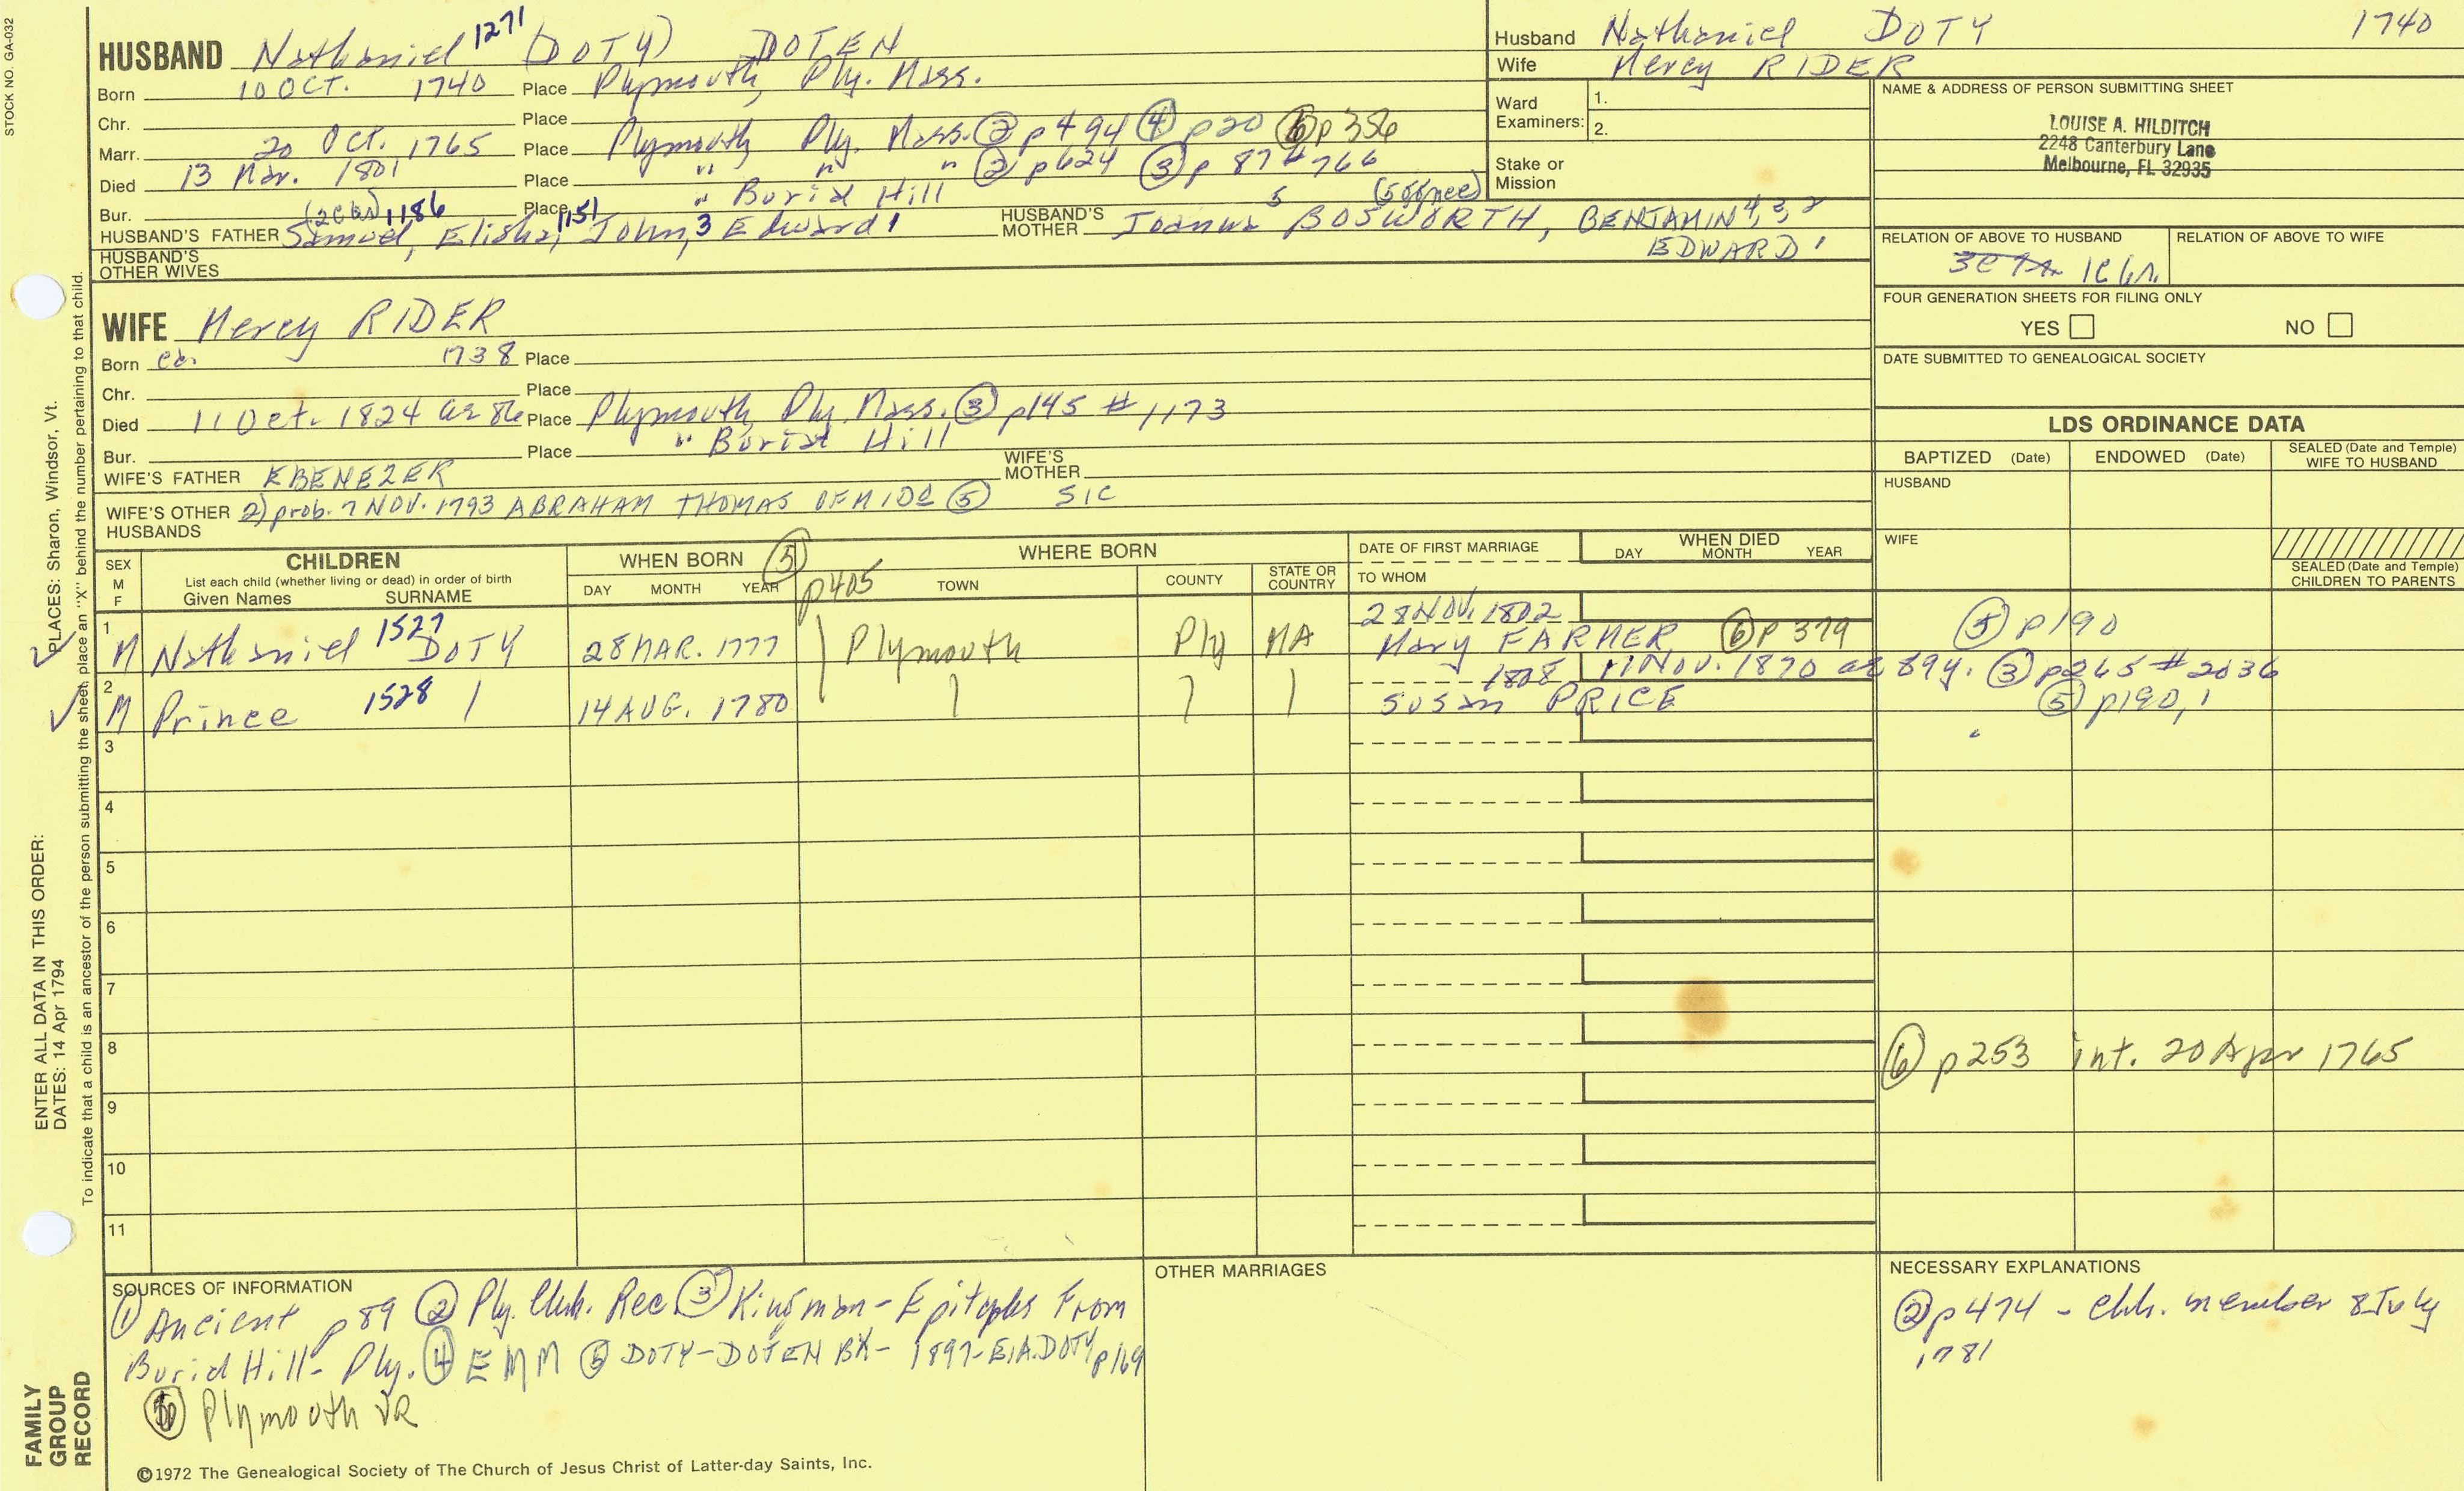 STOCK NO. GA-032
HUSBAND Nathaniel 1271 (DOTY) DOTEN
Born 10 OCT. 1740 Place Plymouth, Ply. Mass.
Chr. Place
Marr. 20 Oct. 1765 Place Plymouth Ply. Mass. ② p 494 ④ p20 ⑥ p356
Died 13 Mar. 1801 Place " " " ② p624 ③ p 87 # 766
Bur. Place " Burial Hill
HUSBAND'S FATHER Samuel, 1186 Elisha, 1151 John, 3 Edward 1
HUSBAND'S MOTHER Joanna 5 BOSWORTH, BENJAMIN 4, 3, 2
EDWARD 1
HUSBAND'S OTHER WIVES
Husband Nathaniel DOTY 1740
Wife Mercy RIDER
Ward Examiners: 1.
2.
Stake or Mission
NAME & ADDRESS OF PERSON SUBMITTING SHEET
LOUISE A. HILDITCH
2248 Canterbury Lane
Melbourne, FL 32935
RELATION OF ABOVE TO HUSBAND RELATION OF ABOVE TO WIFE
1C6r.
FOUR GENERATION SHEETS FOR FILING ONLY
YES NO
DATE SUBMITTED TO GENEALOGICAL SOCIETY
WIFE Mercy RIDER
Born ca. 1738 Place
Chr. Place
Died 11 Oct. 1824 ae 86 Place Plymouth Ply. Mass. ③ p145 # 1173
Bur. Place " Burial Hill
WIFE'S FATHER EBENEZER WIFE'S MOTHER
WIFE'S OTHER HUSBANDS 2) prob. 7 NOV. 1793 ABRAHAM THOMAS OF MIDD ⑤ SIC
LDS ORDINANCE DATA
BAPTIZED (Date) ENDOWED (Date) SEALED (Date and Temple) WIFE TO HUSBAND
HUSBAND
WIFE
SEALED (Date and Temple) CHILDREN TO PARENTS
SEX M F
CHILDREN
List each child (whether living or dead) in order of birth
Given Names SURNAME
WHEN BORN ⑤ p405
DAY MONTH YEAR
WHERE BORN
TOWN COUNTY STATE OR COUNTRY
DATE OF FIRST MARRIAGE
TO WHOM
WHEN DIED
DAY MONTH YEAR
1 M Nathaniel 1527 DOTY 28 MAR. 1777 Plymouth Ply MA 28 NOV. 1802
Mary FARMER ⑥ p 379 ⑤ p190
2 M Prince 1528 14 AUG. 1780 1808 11 Nov. 1870 ae 89y. ③ p265 # 2036
Susan PRICE ⑤ p190, 1
3
4
5
6
7
8 ⑥ p253 int. 20 Apr 1765
9
10
11
SOURCES OF INFORMATION
① Ancient p89 ② Ply. Chh. Rec ③ Kingman - Epitaphs From
Burial Hill - Ply. ④ EMM ⑤ DOTY-DOTEN BK - 1897 - E.A. DOTY p169
⑥ Plymouth VR
OTHER MARRIAGES
NECESSARY EXPLANATIONS
② p474 - chh. member 8 July
1781
©1972 The Genealogical Society of The Church of Jesus Christ of Latter-day Saints, Inc.
FAMILY GROUP RECORD
ENTER ALL DATA IN THIS ORDER:
DATES: 14 Apr 1794
PLACES: Sharon, Windsor, Vt.
To indicate that a child is an ancestor of the person submitting the sheet, place an "X" behind the number pertaining to that child.